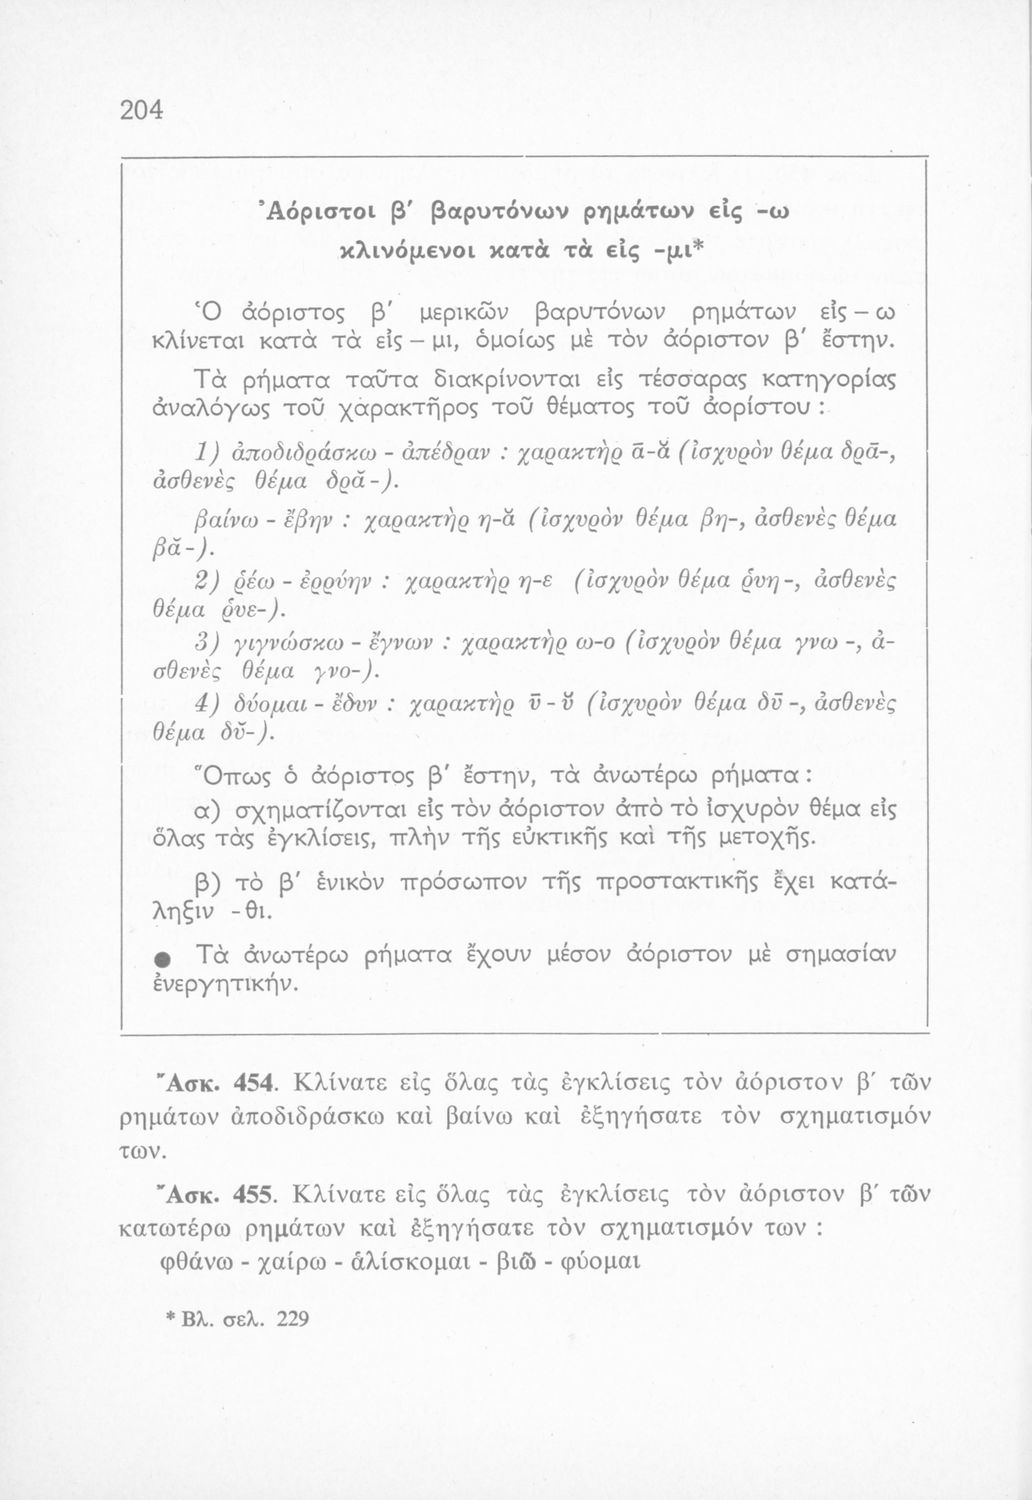 204
Ἀόριστοι β′ βαρυτόνων ρημάτων εἰς -ω
κλινόμενοι κατὰ τὰ εἰς -μι*
Ὁ ἀόριστος β′ μερικῶν βαρυτόνων ρημάτων εἰς – ω
κλίνεται κατὰ τὰ εἰς – μι, ὁμοίως μὲ τὸν ἀόριστον β′ ἔστην.
Τὰ ρήματα ταῦτα διακρίνονται εἰς τέσσαρας κατηγορίας
ἀναλόγως τοῦ χαρακτῆρος τοῦ θέματος τοῦ ἀορίστου :
1) ἀποδιδράσκω - ἀπέδραν : χαρακτὴρ ᾱ-ᾰ (ἰσχυρὸν θέμα δρᾱ-,
ἀσθενὲς θέμα δρᾰ-).
βαίνω - ἔβην : χαρακτὴρ η-ᾰ (ἰσχυρὸν θέμα βη-, ἀσθενὲς θέμα
βᾰ-).
2) ῥέω - ἐρρύην : χαρακτὴρ η-ε (ἰσχυρὸν θέμα ῥυη-, ἀσθενὲς
θέμα ῥυε-).
3) γιγνώσκω - ἔγνων : χαρακτὴρ ω-ο (ἰσχυρὸν θέμα γνω -, ἀ-
σθενὲς θέμα γνο-).
4) δύομαι - ἔδυν : χαρακτὴρ ῡ - ῠ (ἰσχυρὸν θέμα δῡ -, ἀσθενὲς
θέμα δῠ-).
Ὅπως ὁ ἀόριστος β′ ἔστην, τὰ ἀνωτέρω ρήματα :
α) σχηματίζονται εἰς τὸν ἀόριστον ἀπὸ τὸ ἰσχυρὸν θέμα εἰς
ὅλας τὰς ἐγκλίσεις, πλὴν τῆς εὐκτικῆς καὶ τῆς μετοχῆς.
β) τὸ β′ ἑνικὸν πρόσωπον τῆς προστακτικῆς ἔχει κατά-
ληξιν -θι.
● Τὰ ἀνωτέρω ρήματα ἔχουν μέσον ἀόριστον μὲ σημασίαν
ἐνεργητικήν.
Ἄσκ. 454. Κλίνατε εἰς ὅλας τὰς ἐγκλίσεις τὸν ἀόριστον β′ τῶν
ρημάτων ἀποδιδράσκω καὶ βαίνω καὶ ἐξηγήσατε τὸν σχηματισμόν
των.
Ἄσκ. 455. Κλίνατε εἰς ὅλας τὰς ἐγκλίσεις τὸν ἀόριστον β′ τῶν
κατωτέρω ρημάτων καὶ ἐξηγήσατε τὸν σχηματισμόν των :
φθάνω - χαίρω - ἁλίσκομαι - βιῶ - φύομαι
* Βλ. σελ. 229